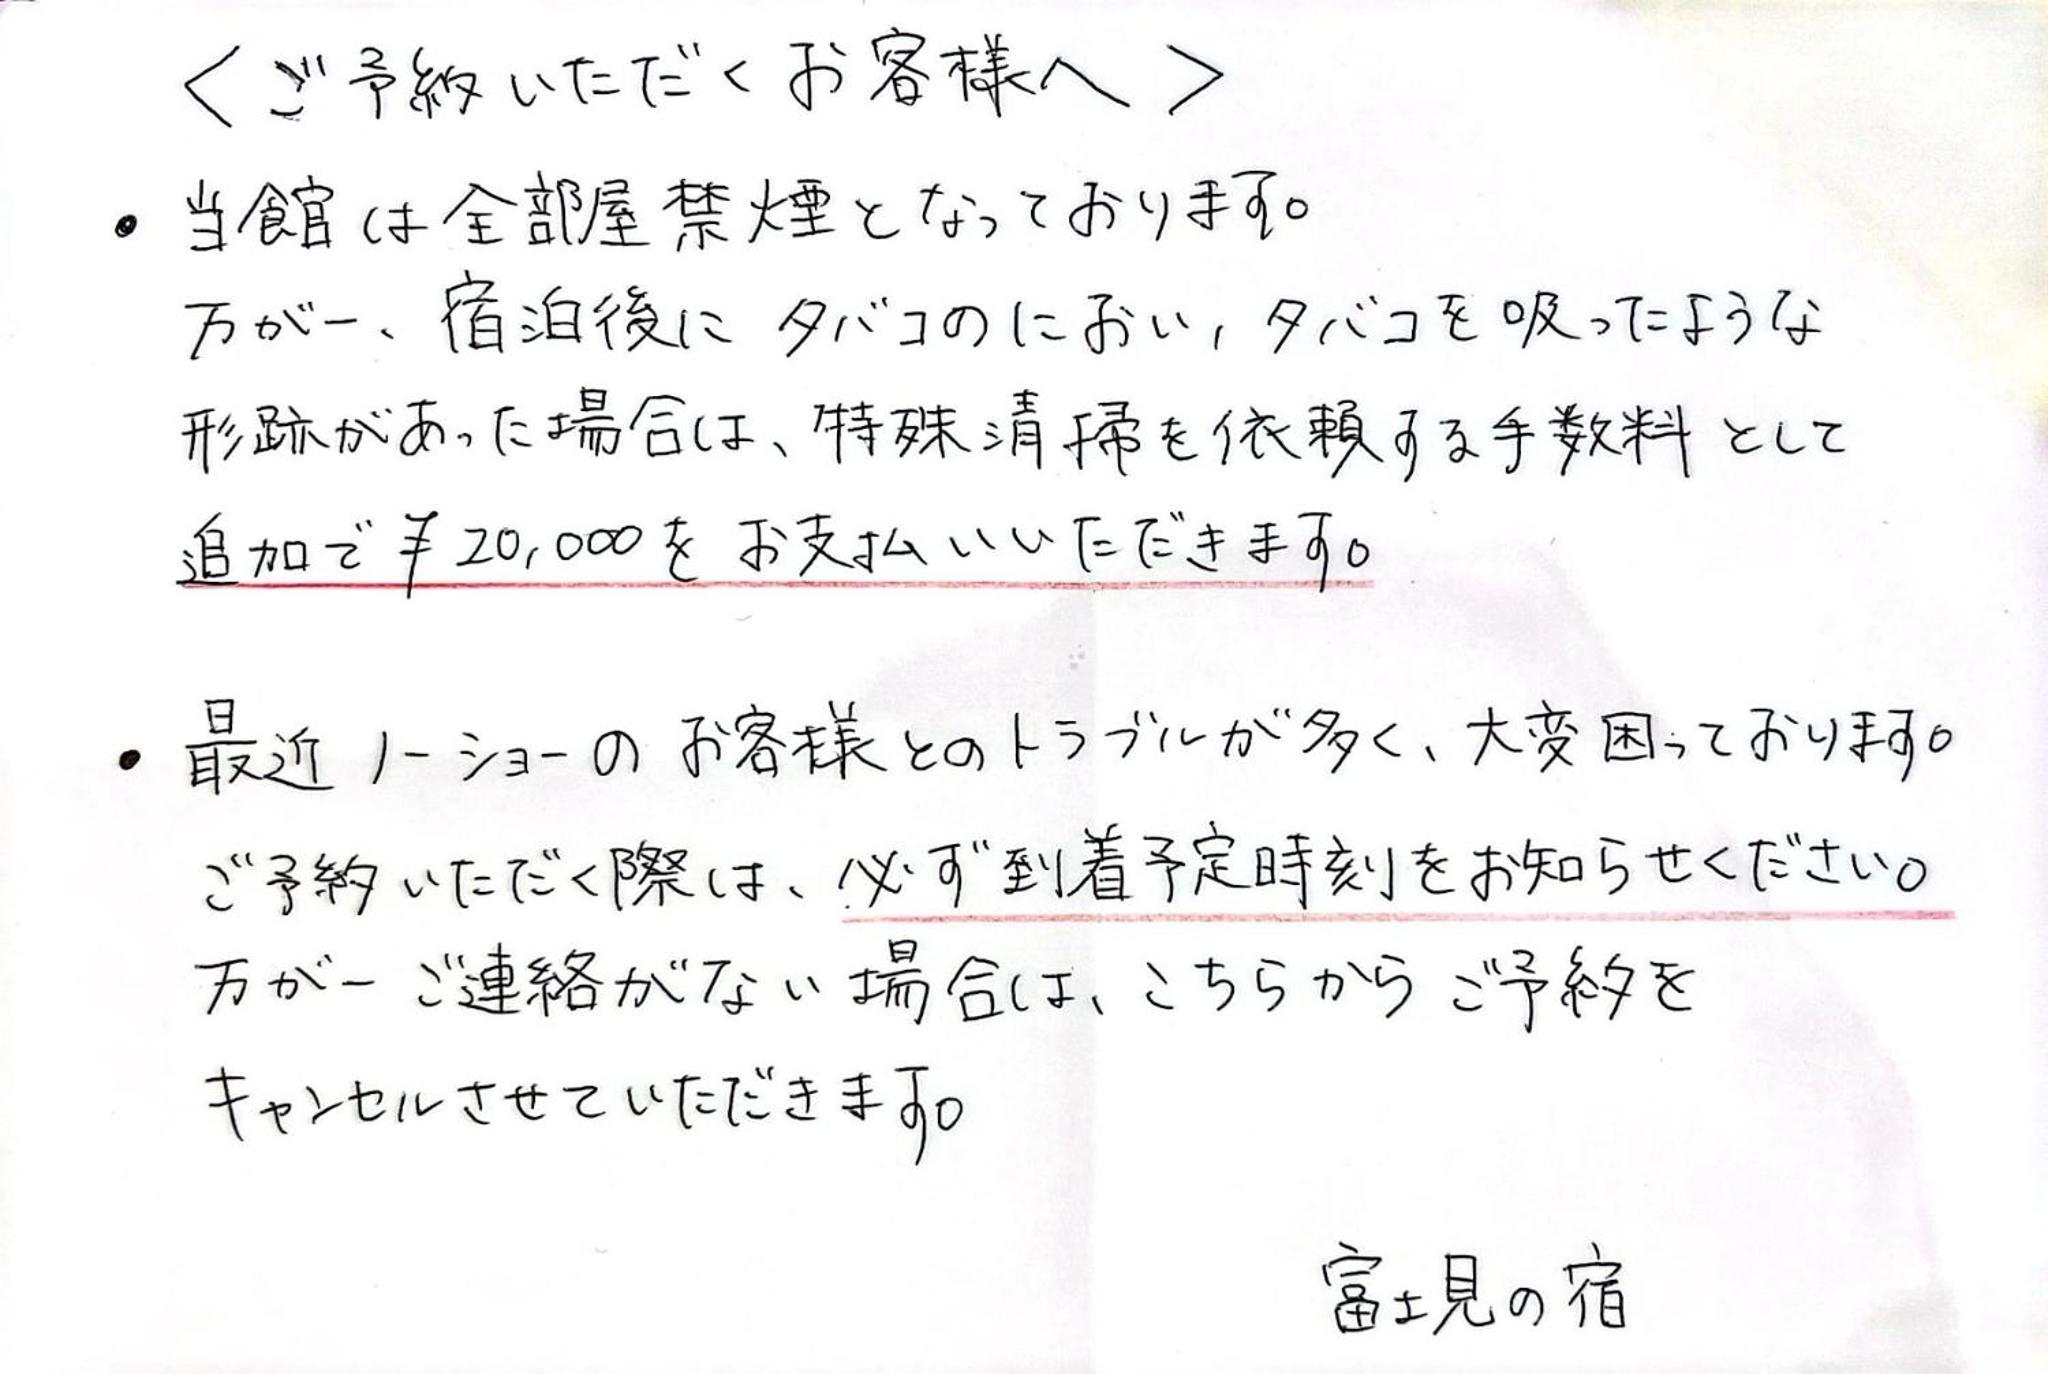 <ご予約いただくお客様へ>
・当館は全部屋禁煙となっております。
万が一、宿泊後にタバコのにおい、タバコを吸ったような
形跡があった場合は、特殊清掃を依頼する手数料として
追加で¥20,000をお支払いいただきます。
・最近ノーショーのお客様とのトラブルが多く、大変困っております。
ご予約いただく際は、必ず到着予定時刻をお知らせください。
万が一ご連絡がない場合は、こちらからご予約を
キャンセルさせていただきます。
富士見の宿